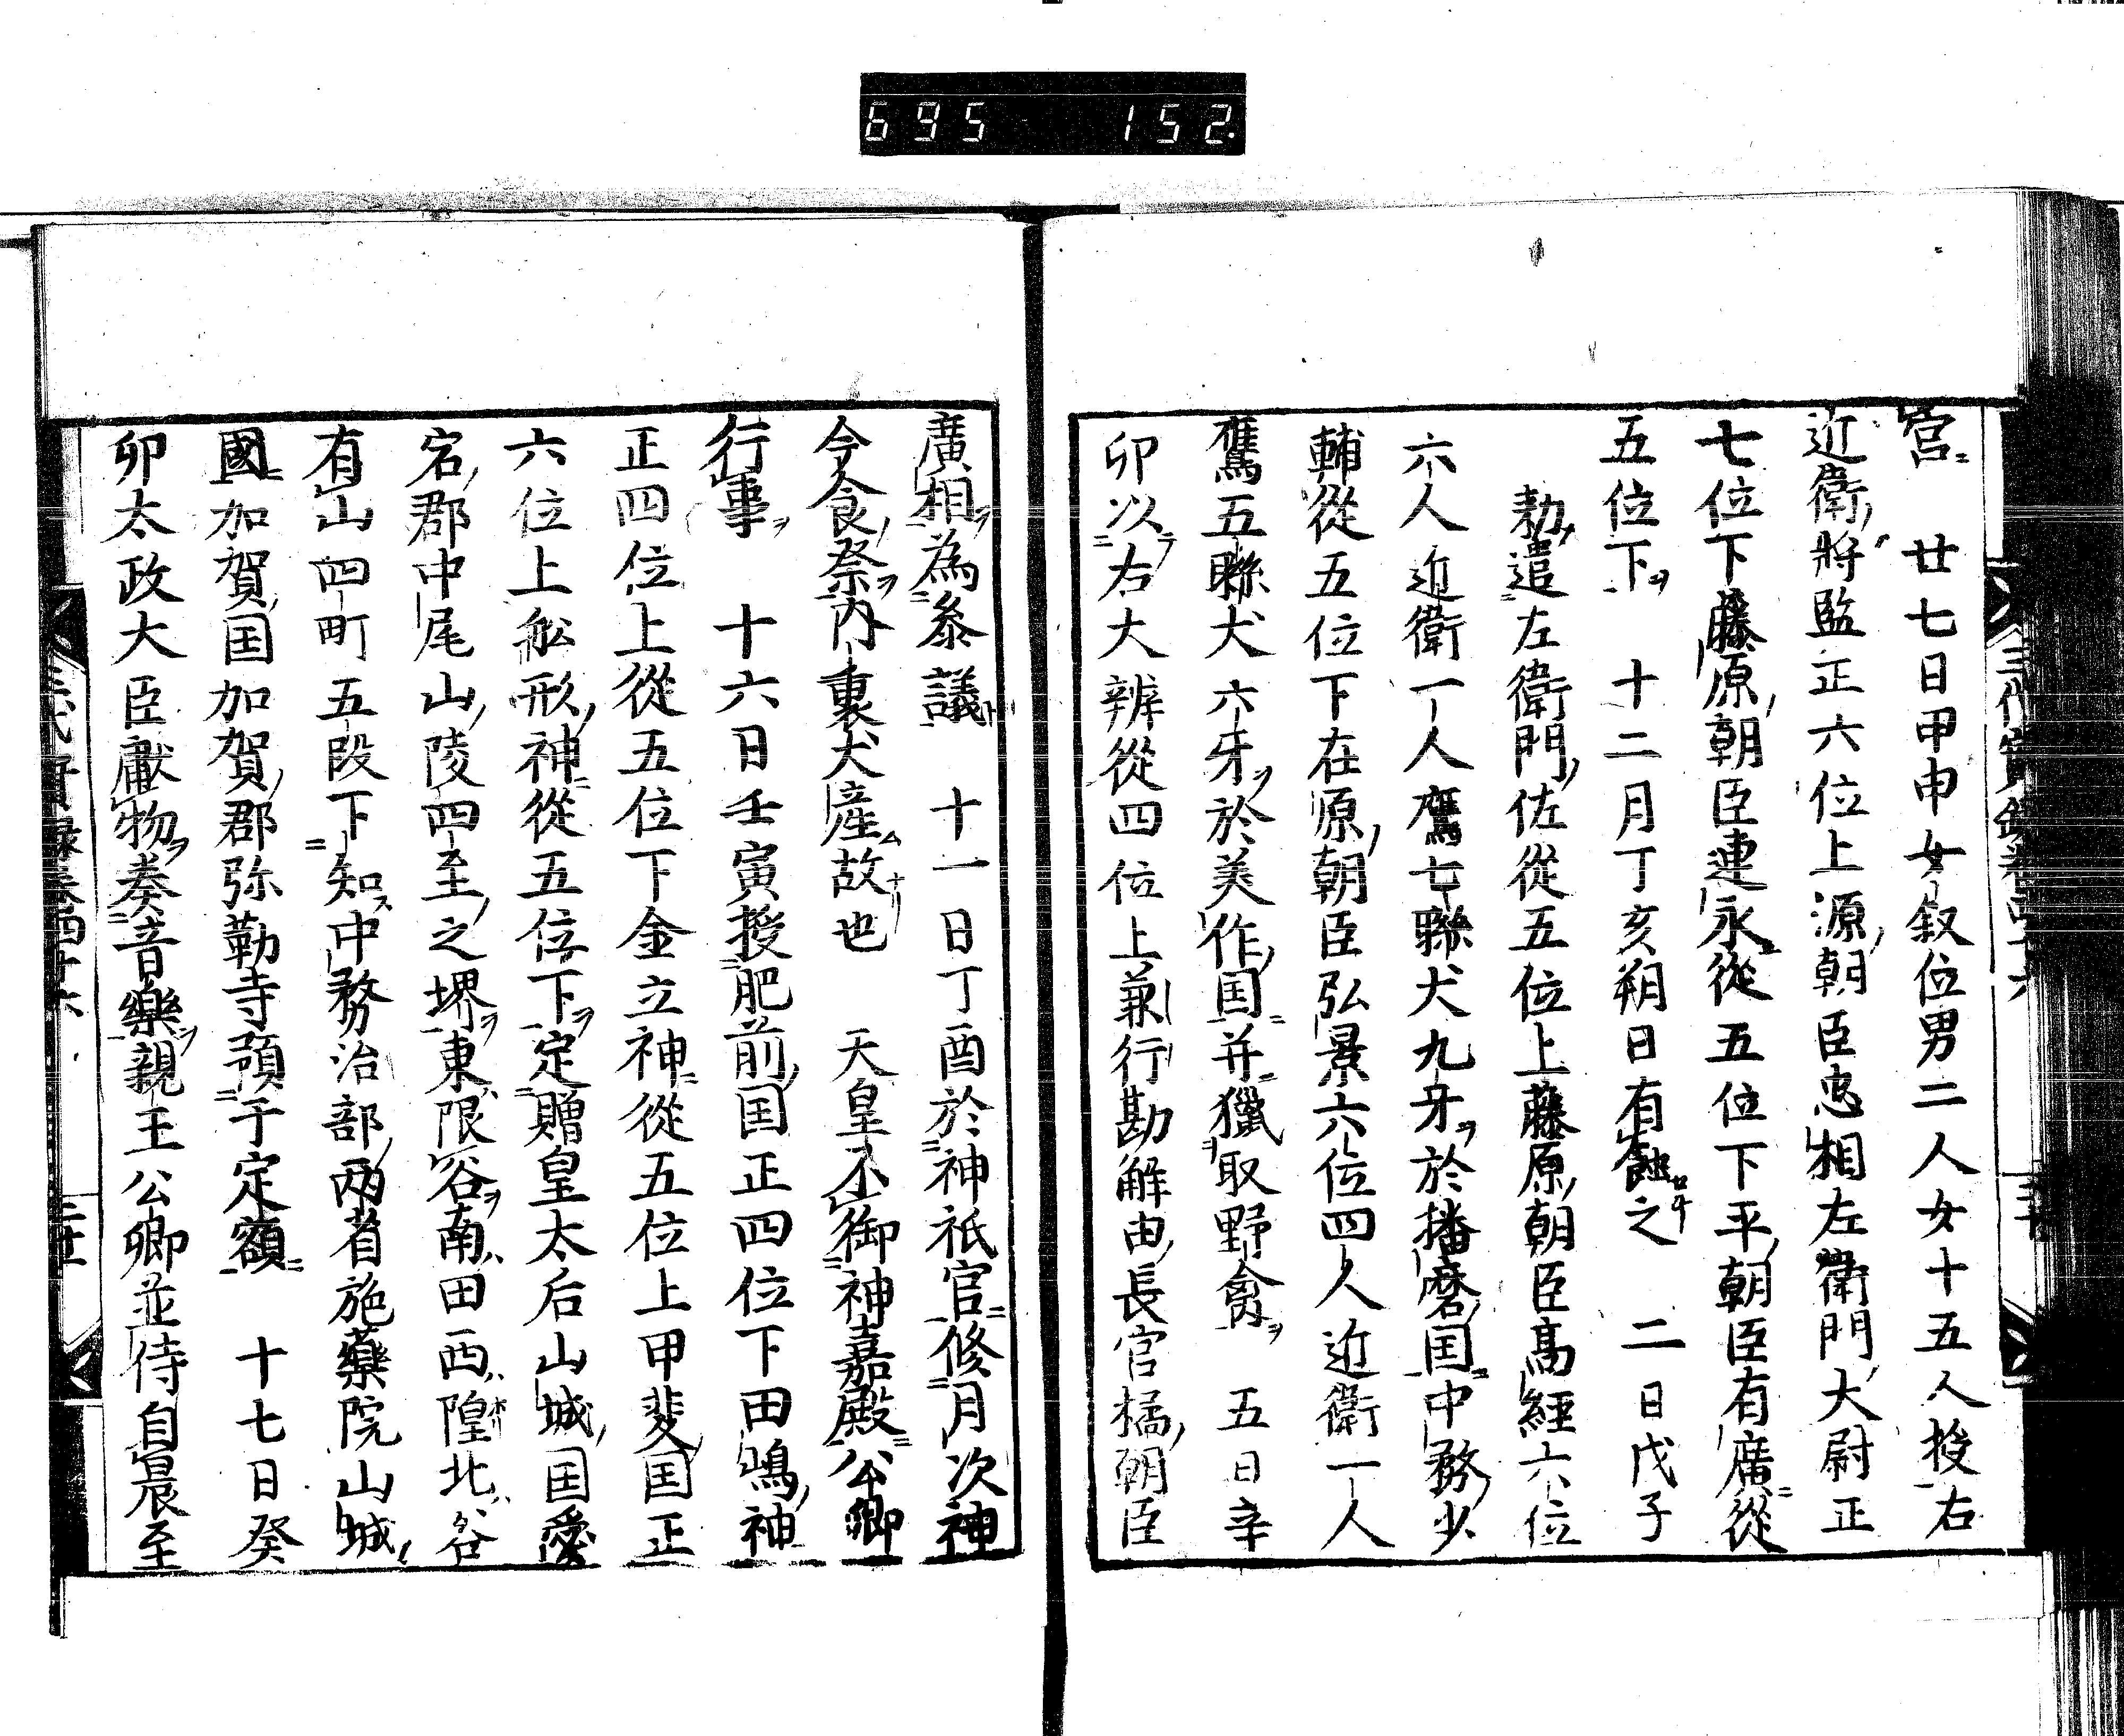 695 152.
宮 廿七日甲申女叙位男二人女十五人授右
近衛將監正六位上源朝臣忠相左衛門大尉正
七位下藤原朝臣連永從五位下平朝臣有廣從
五位下 十二月丁亥朔日有蝕之 二日戊子
勅遣左衛門佐從五位上藤原朝臣高經六位
六人近衛一人鷹七聯犬九牙於播磨国中務少
輔從五位下在原朝臣弘景六位四人近衛一人
鷹五聯犬六牙於美作国并獵取野禽 五日辛
卯以右大辨從四位上兼行勘解由長官橘朝臣
廣相為參議 十一日丁酉於神祇官修月次神
今食祭内裏犬産故也 天皇不御神嘉殿公卿
行事 十六日壬寅授肥前国正四位下田嶋神
正四位上從五位下金立神從五位上甲斐国正
六位上舩形神從五位下定贈皇太后山城国愛
宕郡中尾山陵四至之堺東限谷南田西隍北谷
有山四町五段下知中務治部两省施藥院山城
國加賀国加賀郡弥勒寺預于定額 十七日癸
卯太政大臣獻物奏音樂親王公卿並侍自晨至